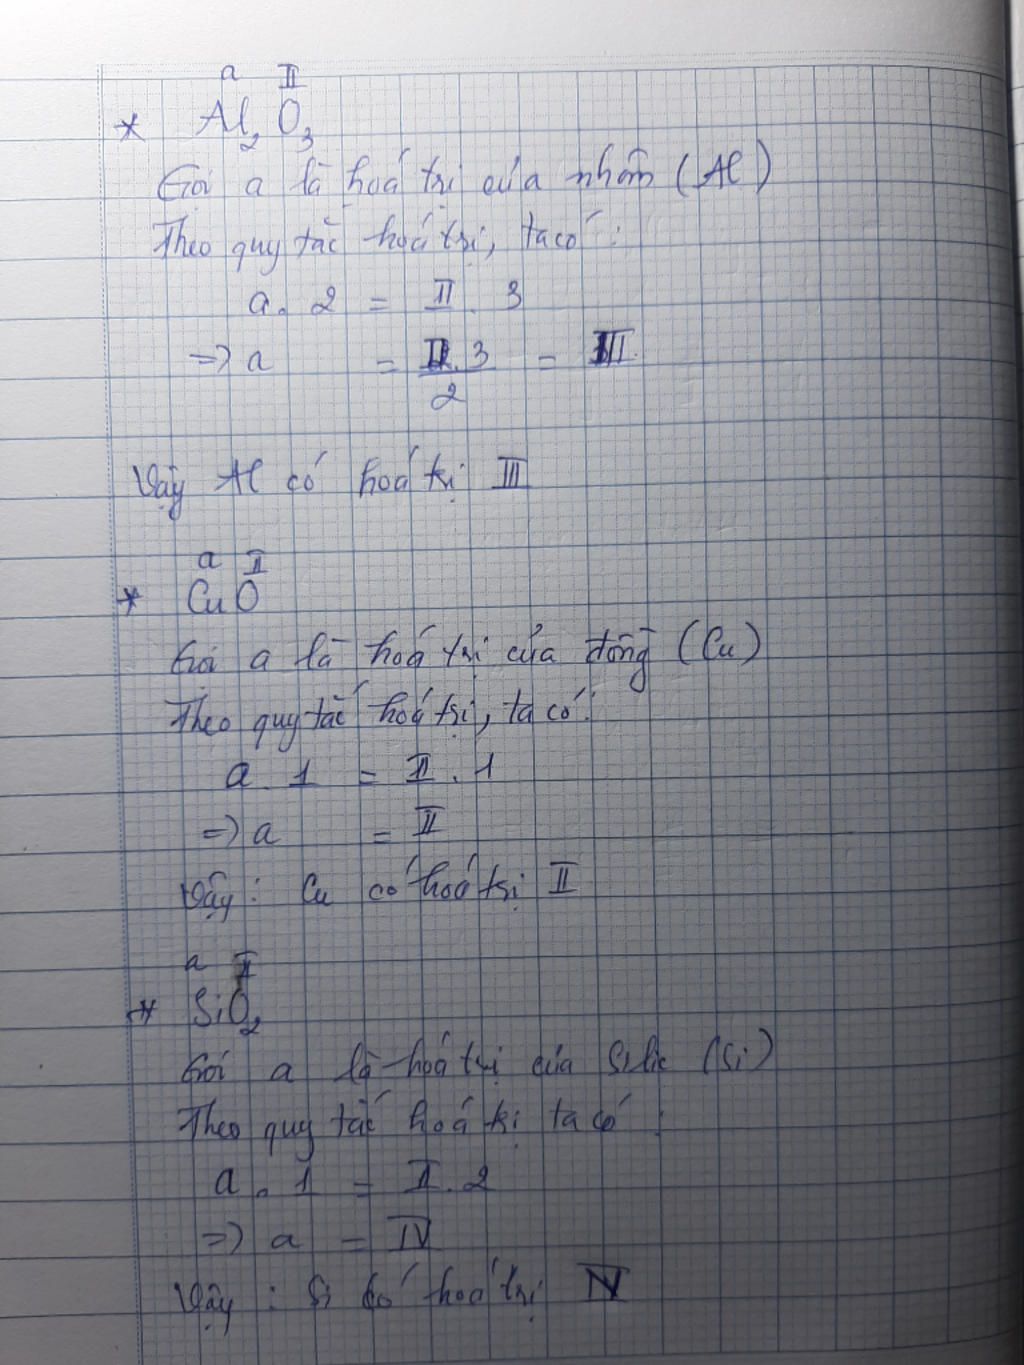 a II
* Al2 O3
Gọi a là hoá trị của nhôm (Al)
Theo quy tắc hoá trị, ta có :
a. 2 = II . 3
=> a = II.3 = III.
2
Vậy Al có hoá trị III
a II
* CuO
Gọi a là hoá trị của đồng (Cu)
Theo quy tắc hoá trị, ta có :
a . 1 = II . 1
=> a = II
Vậy : Cu có hoá trị II
a II
* SiO2
Gọi a là hoá trị của Silic (Si)
Theo quy tắc hoá trị ta có :
a . 1 = II . 2
=> a = IV
Vậy : Si có hoá trị IV